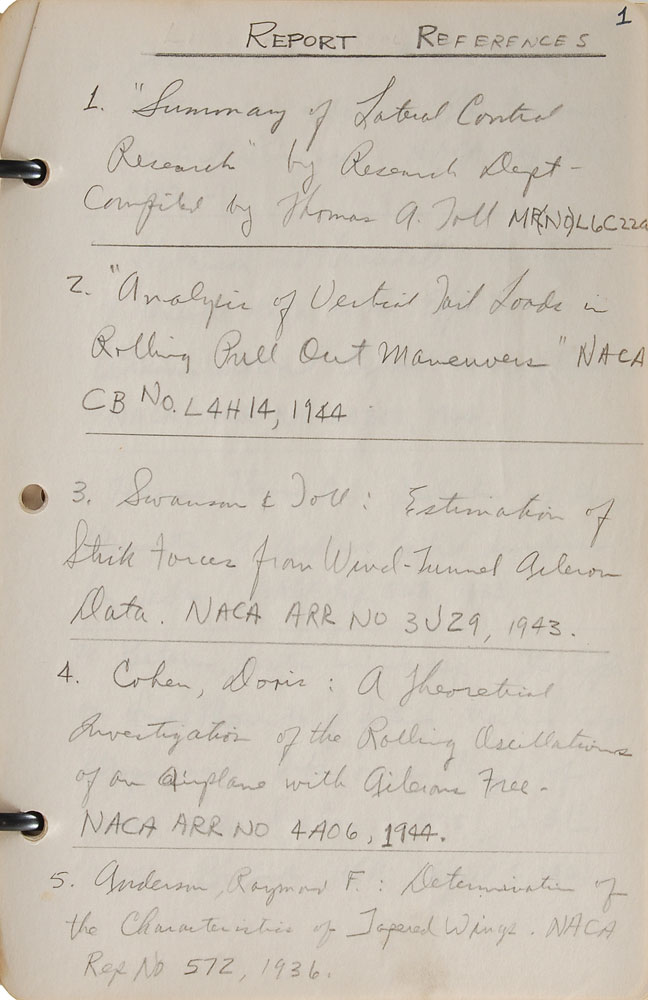 1
REPORT REFERENCES
1. "Summary of Lateral Control
Research" by Research Dept-
Compiled by Thomas A. Toll MR(NO)L6C22a
2. "Analysis of Vertical Tail Loads in
Rolling Pull Out Maneuvers" NACA
CB NO. L4H14, 1944
3. Swanson & Toll: Estimation of
Stick Forces from Wind-Tunnel Aileron
Data. NACA ARR NO 3J29, 1943.
4. Cohen, Doris: A Theoretical
Investigation of the Rolling Oscillations
of an Airplane with Ailerons Free-
NACA ARR NO 4A06, 1944.
5. Anderson, Raymond F.: Determination of
the Characteristics of Tapered Wings. NACA
Rep No 572, 1936.